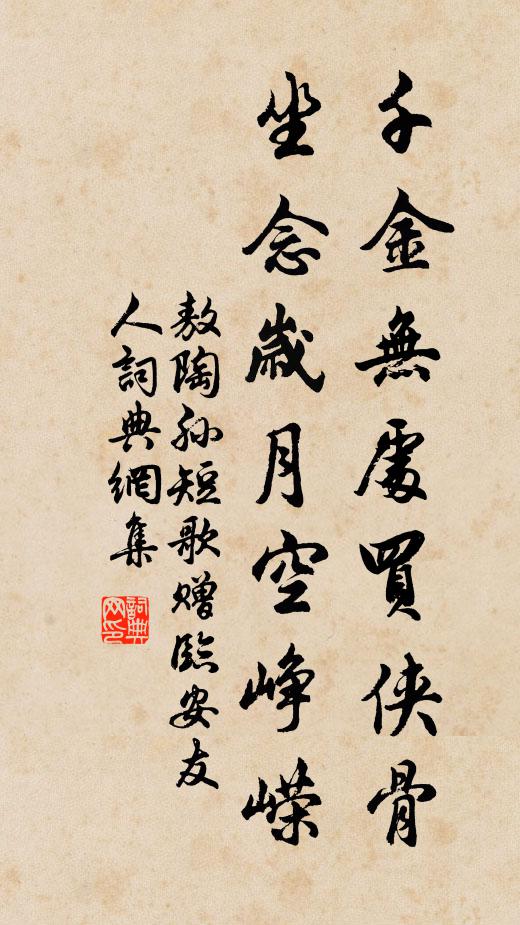 千金無處買俠骨
坐念歲月空崢嶸
敖陶孫短歌贈臨安友
人詞典網集
詞典網印